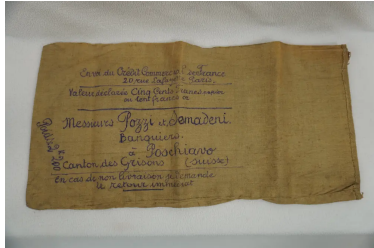 Envoi du Crédit Commercial de France
20 rue Lafayette Paris.
Valeur déclarée Cinq Cents Francs
ou cent francs or
Messieurs Pozzi et Semadeni
Banquiers
à Poschiavo
Canton des Grisons (Suisse)
En cas de non livraison je demande
le retour immédiat